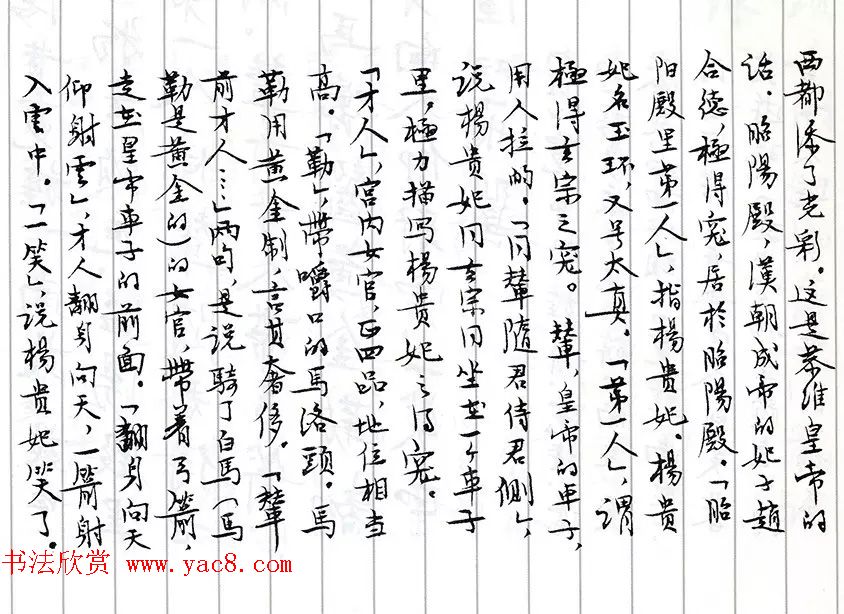 西都添了光彩。这是恭维皇帝的
话。昭陽殿,漢朝成帝的妃子趙
合德,極得寵,居於昭陽殿。「昭
阳殿里第一人」,指楊贵妃。楊贵
妃名玉环,又号太真。「第一人」,謂
極得玄宗之寵。輦,皇帝的車子,
用人拉的。「同輦隨君侍君側」,
说楊贵妃同玄宗同坐在一个車子
里,極力描写楊贵妃之得寵。
「才人」,宫内女官,正四品,地位相当
高。「勒」,帶嚼口的馬洛頭。馬
勒用黄金制,言其奢侈。「輦
前才人…」两句,是说騎了白馬(馬
勒是黄金的)的女官,帶着弓箭,
走在皇帝車子的前面。「翻身向天
仰射雲」,才人翻身向天,一箭射
入雲中。「一笑」,说楊贵妃笑了。
书法欣赏 www.yac8.com